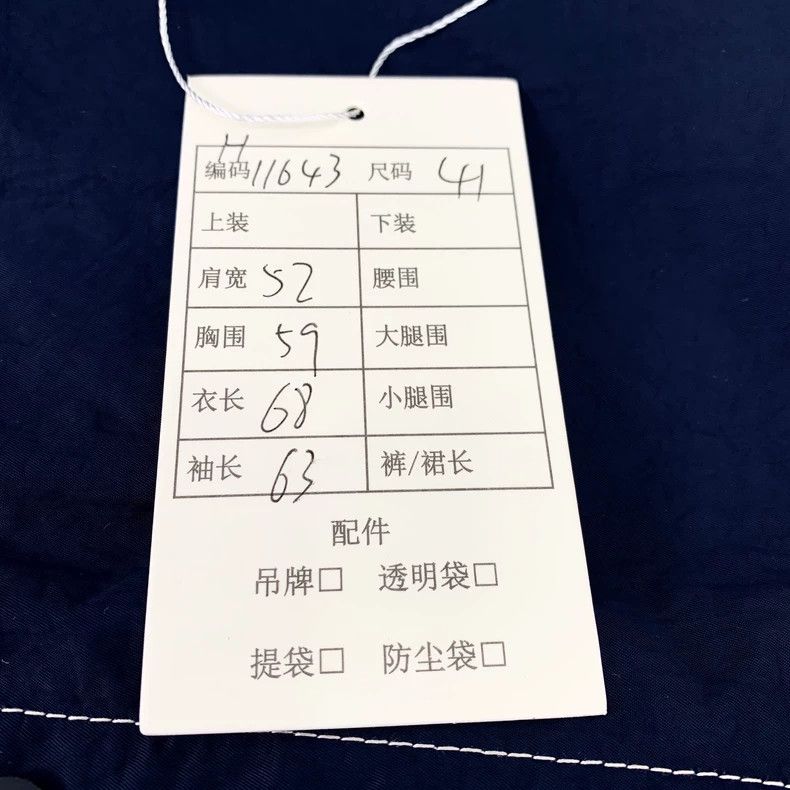 编码 H11643 尺码 41
上装 下装
肩宽 52 腰围
胸围 59 大腿围
衣长 68 小腿围
袖长 63 裤/裙长
配件
吊牌□ 透明袋□
提袋□ 防尘袋□